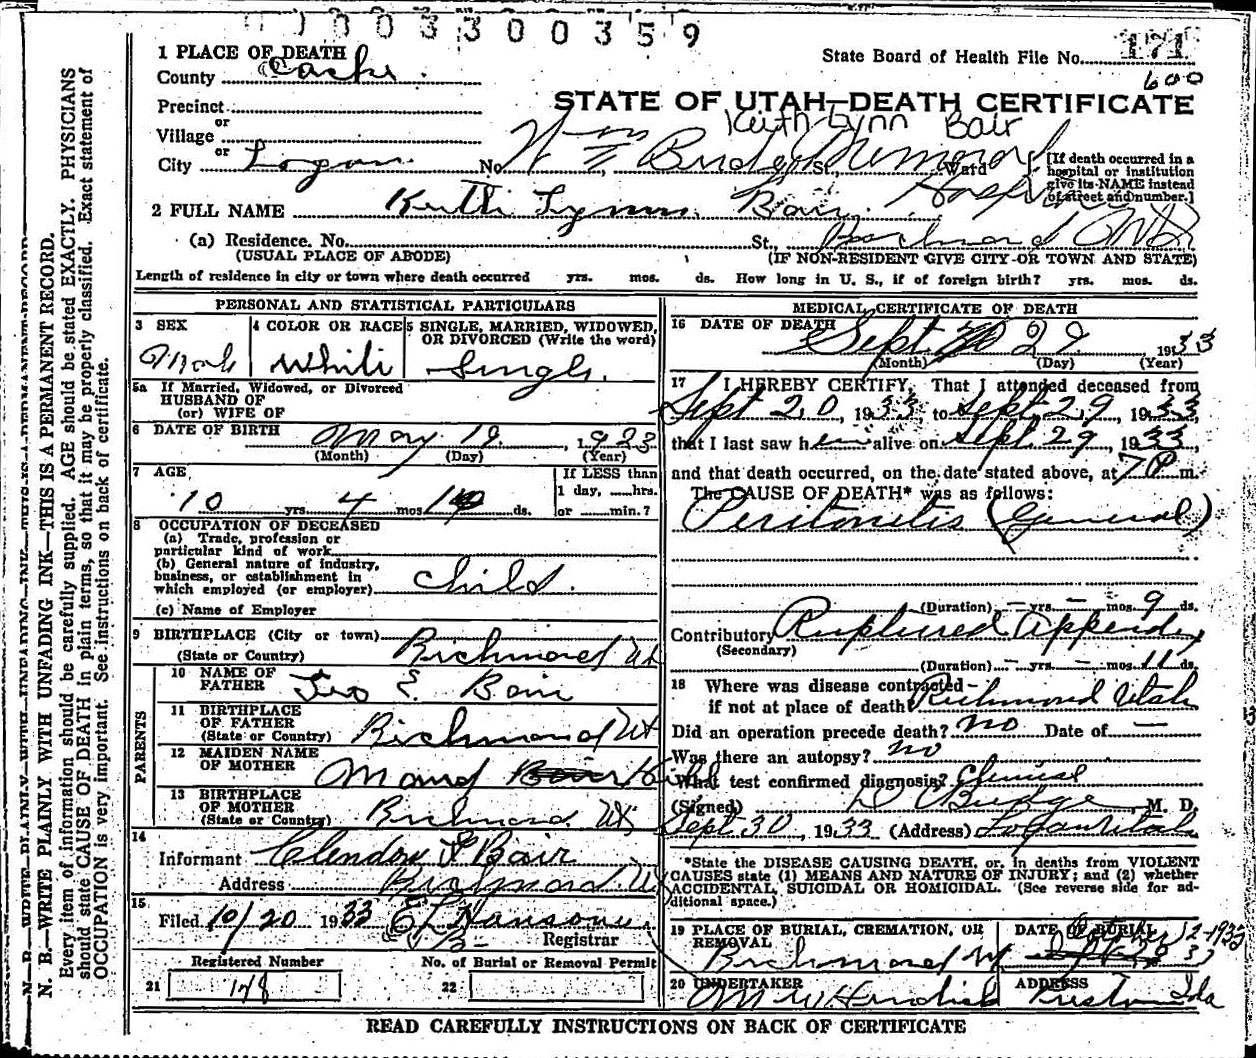 0003300359
1 PLACE OF DEATH
State Board of Health File No. 171
County Cache.
600
Precinct
STATE OF UTAH—DEATH CERTIFICATE
or
Keith Lynn Bair
Village
or
City Logan. No. Wm Budge Memorial Hospital St., Ward
[If death occurred in a hospital or institution give its NAME instead of street and number.]
2 FULL NAME Keith Lynn Bair.
(a) Residence. No. St., Richmond Utah
(USUAL PLACE OF ABODE) (IF NON-RESIDENT GIVE CITY OR TOWN AND STATE)
Length of residence in city or town where death occurred yrs. mos. ds. How long in U. S., if of foreign birth? yrs. mos. ds.
PERSONAL AND STATISTICAL PARTICULARS
3 SEX
Male
4 COLOR OR RACE
White
5 SINGLE, MARRIED, WIDOWED, OR DIVORCED (Write the word)
Single.
5a If Married, Widowed, or Divorced
HUSBAND OF
(or) WIFE OF
6 DATE OF BIRTH May 19, 1923
(Month) (Day) (Year)
7 AGE
10 yrs. 4 mos. ds.
If LESS than
1 day, hrs.
or min.?
8 OCCUPATION OF DECEASED
(a) Trade, profession or
particular kind of work
(b) General nature of industry,
business, or establishment in
which employed (or employer) Child.
(c) Name of Employer
9 BIRTHPLACE (City or town) Richmond Ut
(State or Country)
PARENTS
10 NAME OF FATHER Geo E. Bair
11 BIRTHPLACE OF FATHER Richmond Ut
(State or Country)
12 MAIDEN NAME OF MOTHER Maud Bair Hill
13 BIRTHPLACE OF MOTHER Richmond Ut
(State or Country)
14
Informant Clendon F Bair
Address Richmond Ut
15
Filed 10/20 1933
Registrar
Registered Number No. of Burial or Removal Permit
21 178 22
MEDICAL CERTIFICATE OF DEATH
16 DATE OF DEATH
Sept. 29 1933
(Month) (Day) (Year)
17 I HEREBY CERTIFY, That I attended deceased from
Sept 20, 1933 to Sept 29, 1933,
that I last saw him alive on Sept 29, 1933,
and that death occurred, on the date stated above, at 7 P m.
The CAUSE OF DEATH* was as follows:
Peritonitis (General)
(Duration) — yrs. — mos. 9 ds.
Contributory Ruptured Appendix
(Secondary)
(Duration) — yrs. — mos. 11 ds.
18 Where was disease contracted
if not at place of death? Richmond Utah
Did an operation precede death? no Date of —
Was there an autopsy? no
What test confirmed diagnosis? Clinical
(Signed) D C Budge, M. D.
Sept 30, 1933 (Address) Logan Utah
*State the DISEASE CAUSING DEATH, or, in deaths from VIOLENT
CAUSES state (1) MEANS AND NATURE OF INJURY; and (2) whether
ACCIDENTAL, SUICIDAL OR HOMICIDAL. (See reverse side for ad-
ditional space.)
19 PLACE OF BURIAL, CREMATION, OR REMOVAL
Richmond Ut
DATE OF BURIAL
October 2-1933
20 UNDERTAKER
ADDRESS
Preston Ida
READ CAREFULLY INSTRUCTIONS ON BACK OF CERTIFICATE
N. B.—WRITE PLAINLY WITH UNFADING INK—THIS IS A PERMANENT RECORD.
Every item of information should be carefully supplied. AGE should be stated EXACTLY. PHYSICIANS
should state CAUSE OF DEATH in plain terms, so that it may be properly classified. Exact statement of
OCCUPATION is very important. See instructions on back of certificate.